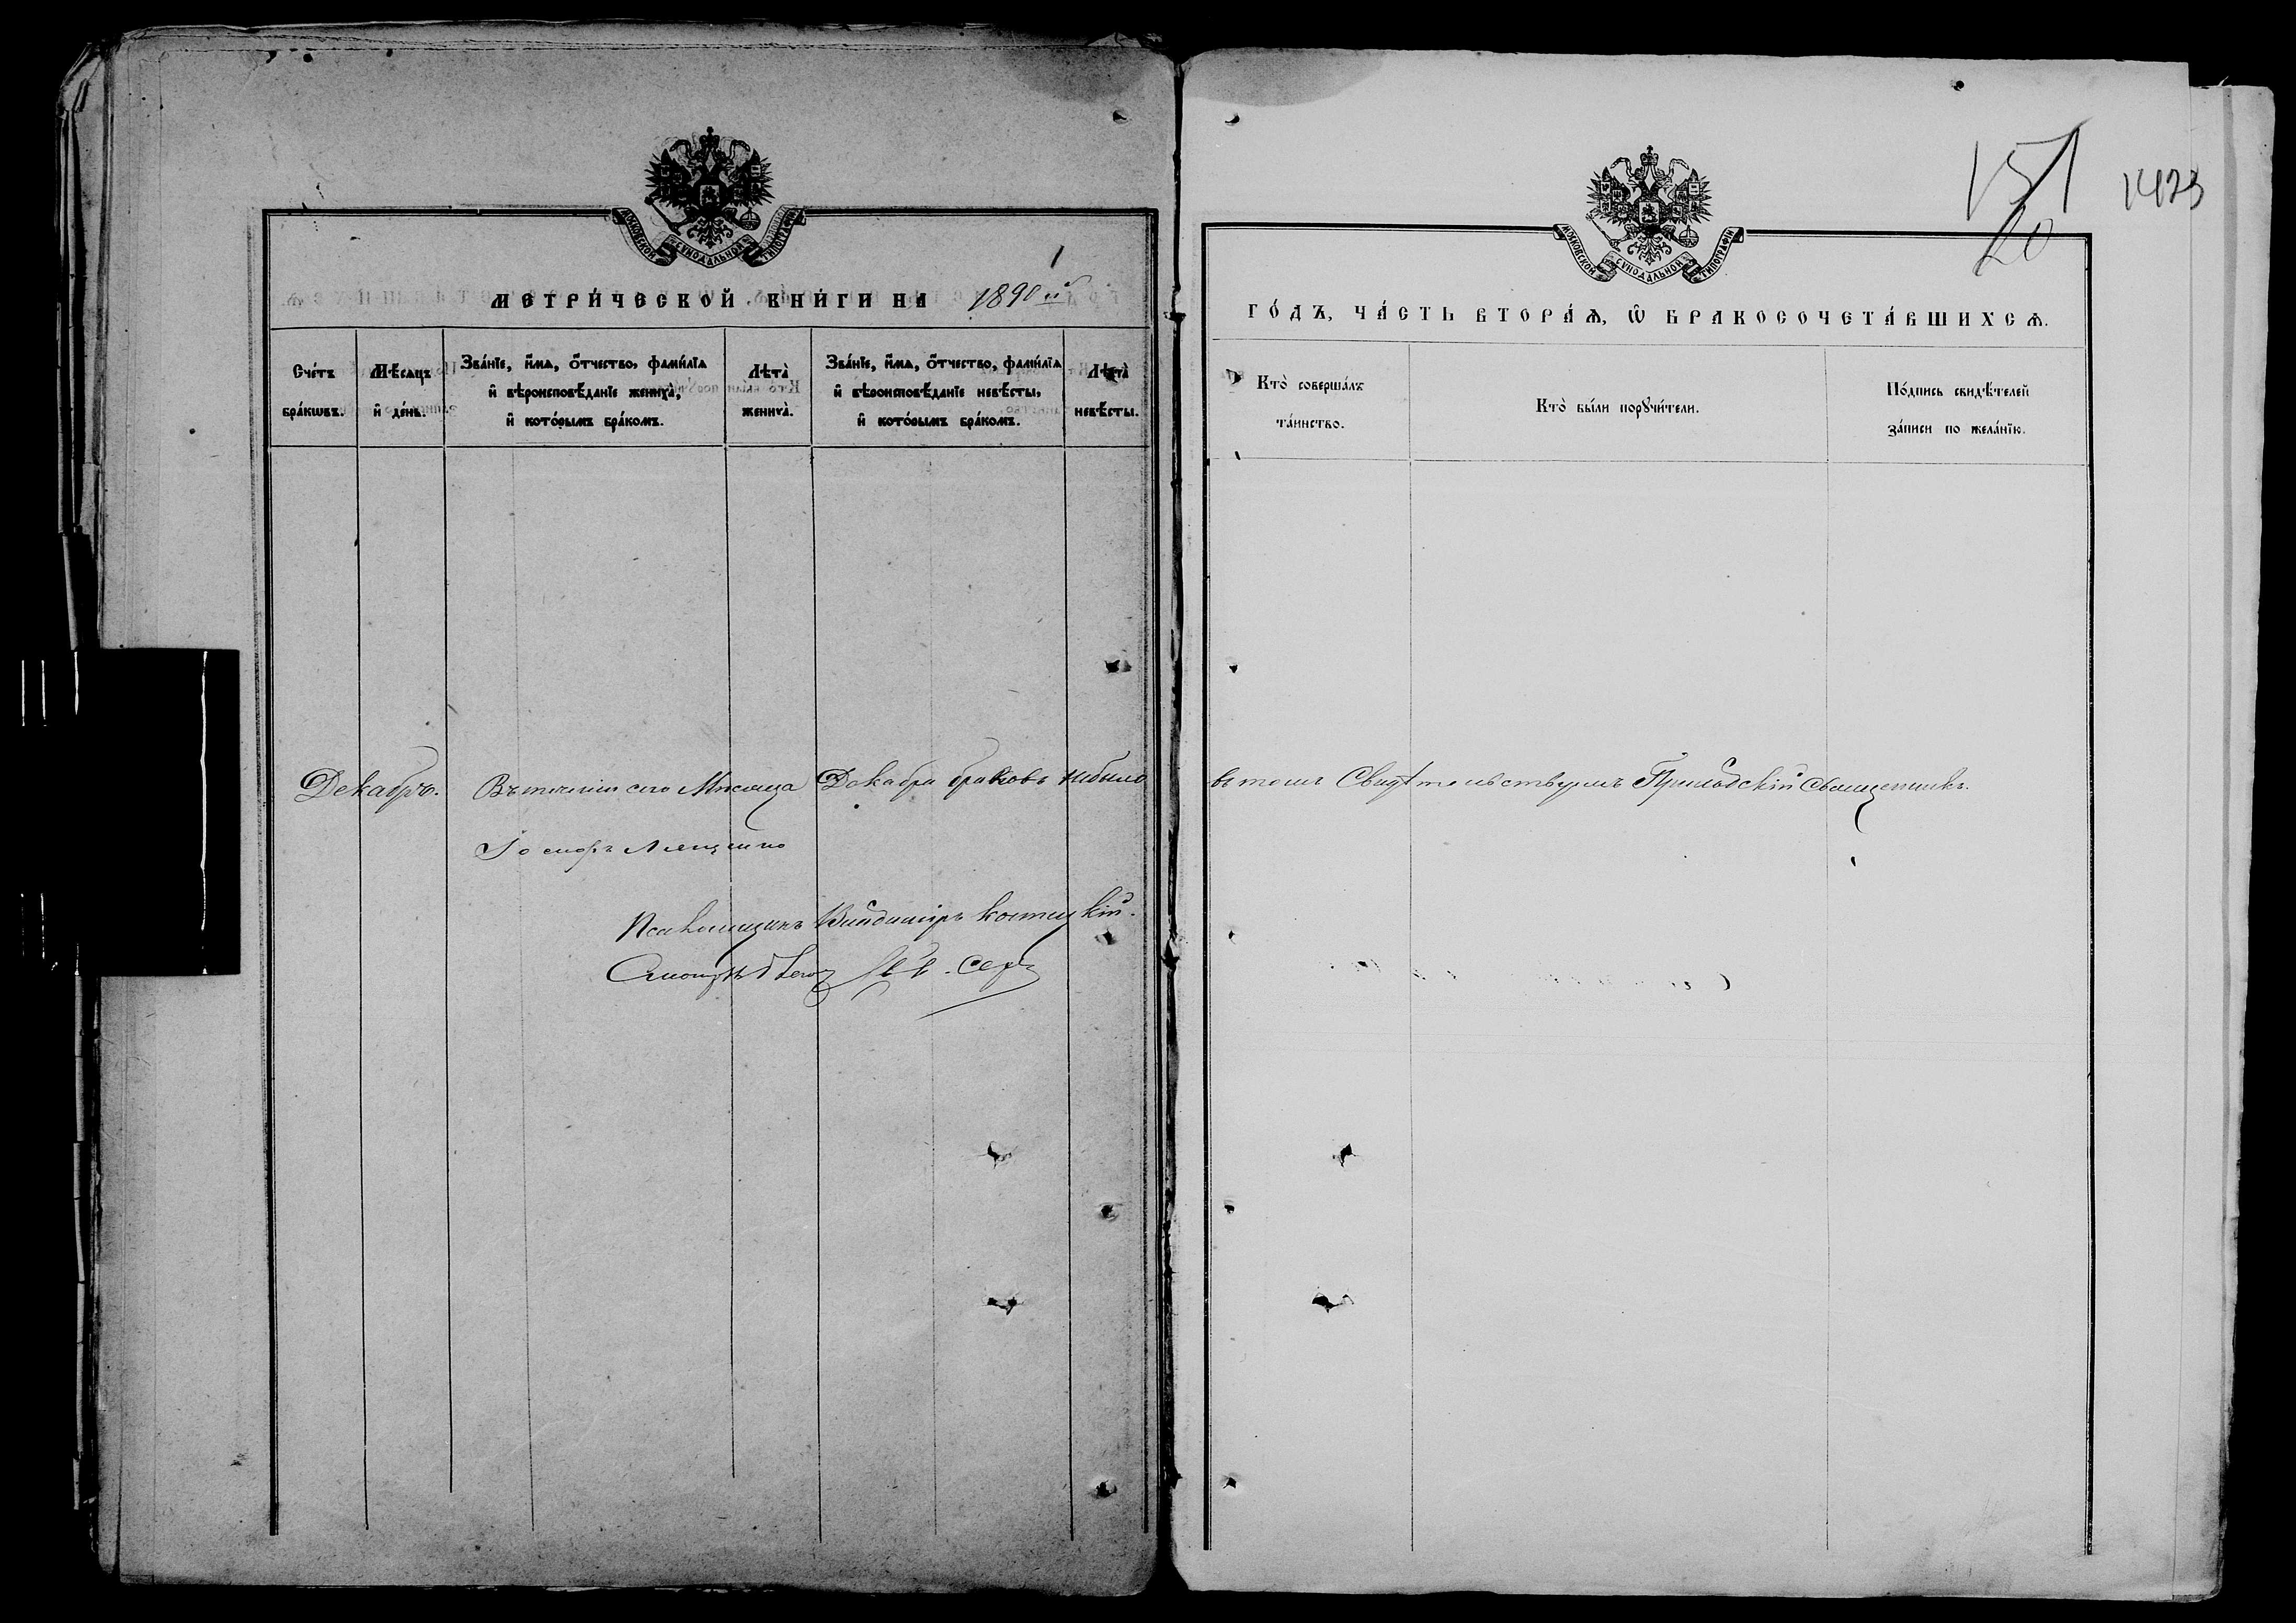 МОСКОВСКОЙ СѴНОДАЛЬНОЙ ТИПОГРАФІИ
1
МЕТРИ́ЧЕСКОЙ КНИ́ГИ НА 1890 ый
Сче́тъ бра́кѡвъ.
Мѣ́сяцъ и҆ де́нь.
Зва́нїе, и҆́мѧ, ѻ҆́тчество, фами́лїа и҆ вѣроисповѣ́данїе жениха̀, и҆ кото́рымъ бра́комъ.
Лѣ̑та̀ жениха̀.
Зва́нїе, и҆́мѧ, ѻ҆́тчество, фами́лїа и҆ вѣроисповѣ́данїе невѣ́сты, и҆ кото́рымъ бра́комъ.
Лѣ̑та̀ невѣ́сты.
Декабрь. Въ теченіи сего Мѣсяца Декабря браковъ небыло
Псаломщикъ Владиміръ Костецкій.
МОСКОВСКОЙ СѴНОДАЛЬНОЙ ТИПОГРАФІИ
151
20
1423
ГО́ДЪ, ЧА́СТЬ ВТОРА́Ѧ, Ѡ҆ БРАКОСОЧЕТА́ВШИХСѦ.
Кто̀ соверша́лъ та́инство.
Кто̀ бы́ли порꙋчи́тели.
По́дпись свидѣ́телей за́писи по жела́нїю.
въ томъ Свидѣтельствуемъ Священникъ.